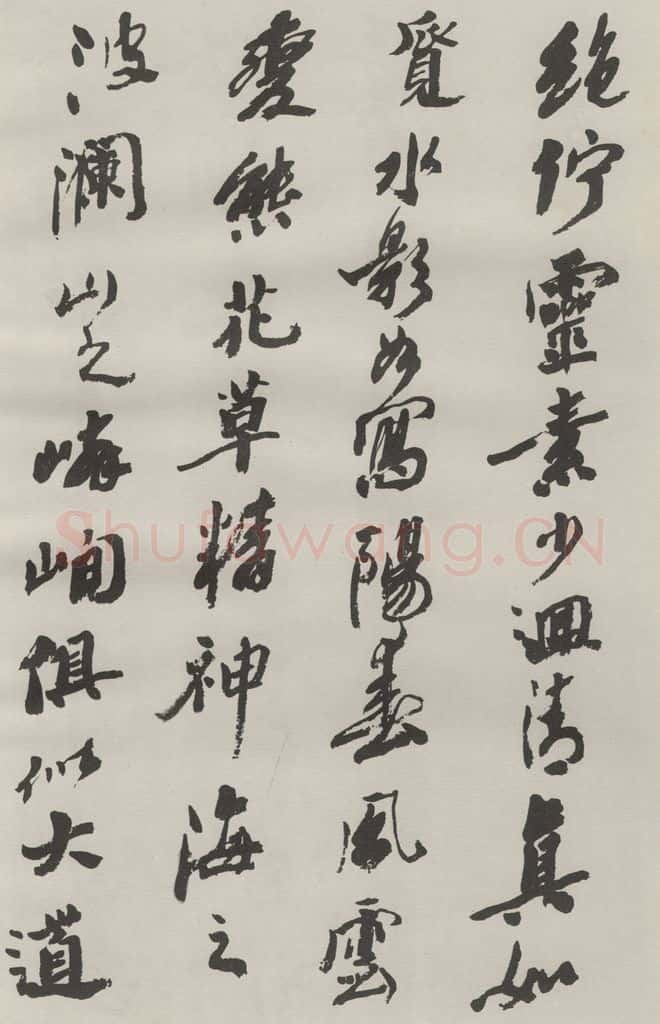 絕佇靈素少迴清真如
覓水影如寫陽春風雲
變態花草精神海之
波瀾山之嶙峋俱似大道
Shufawang.CN